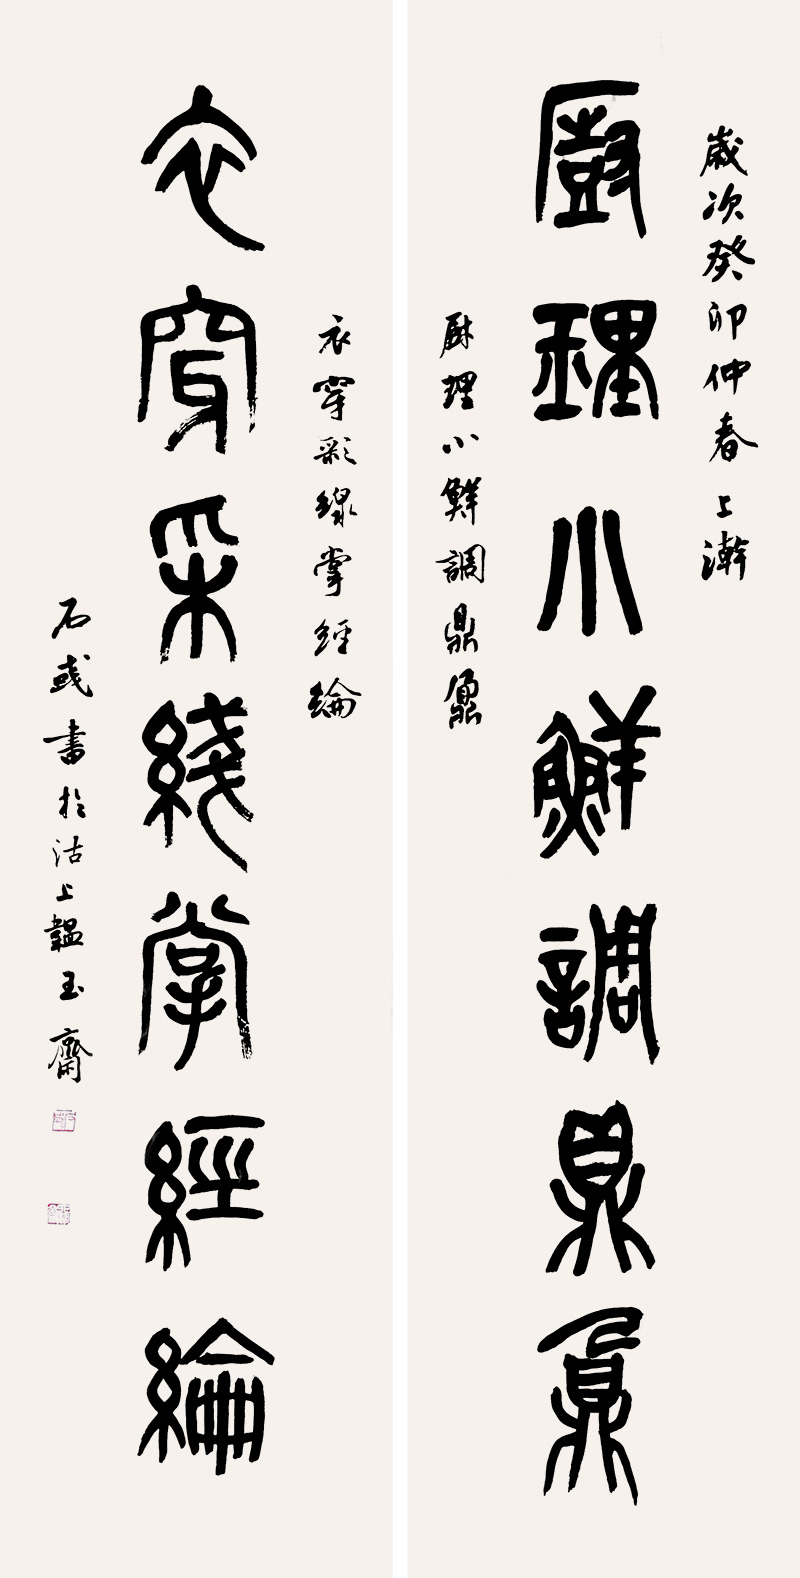 歲次癸卯仲春上澣
廚理小鮮調鼎鼐
厨理小鮮調鼎鼐
衣穿彩線掌經綸
衣穿采綫掌經綸
石彧書於沽上韞玉齋